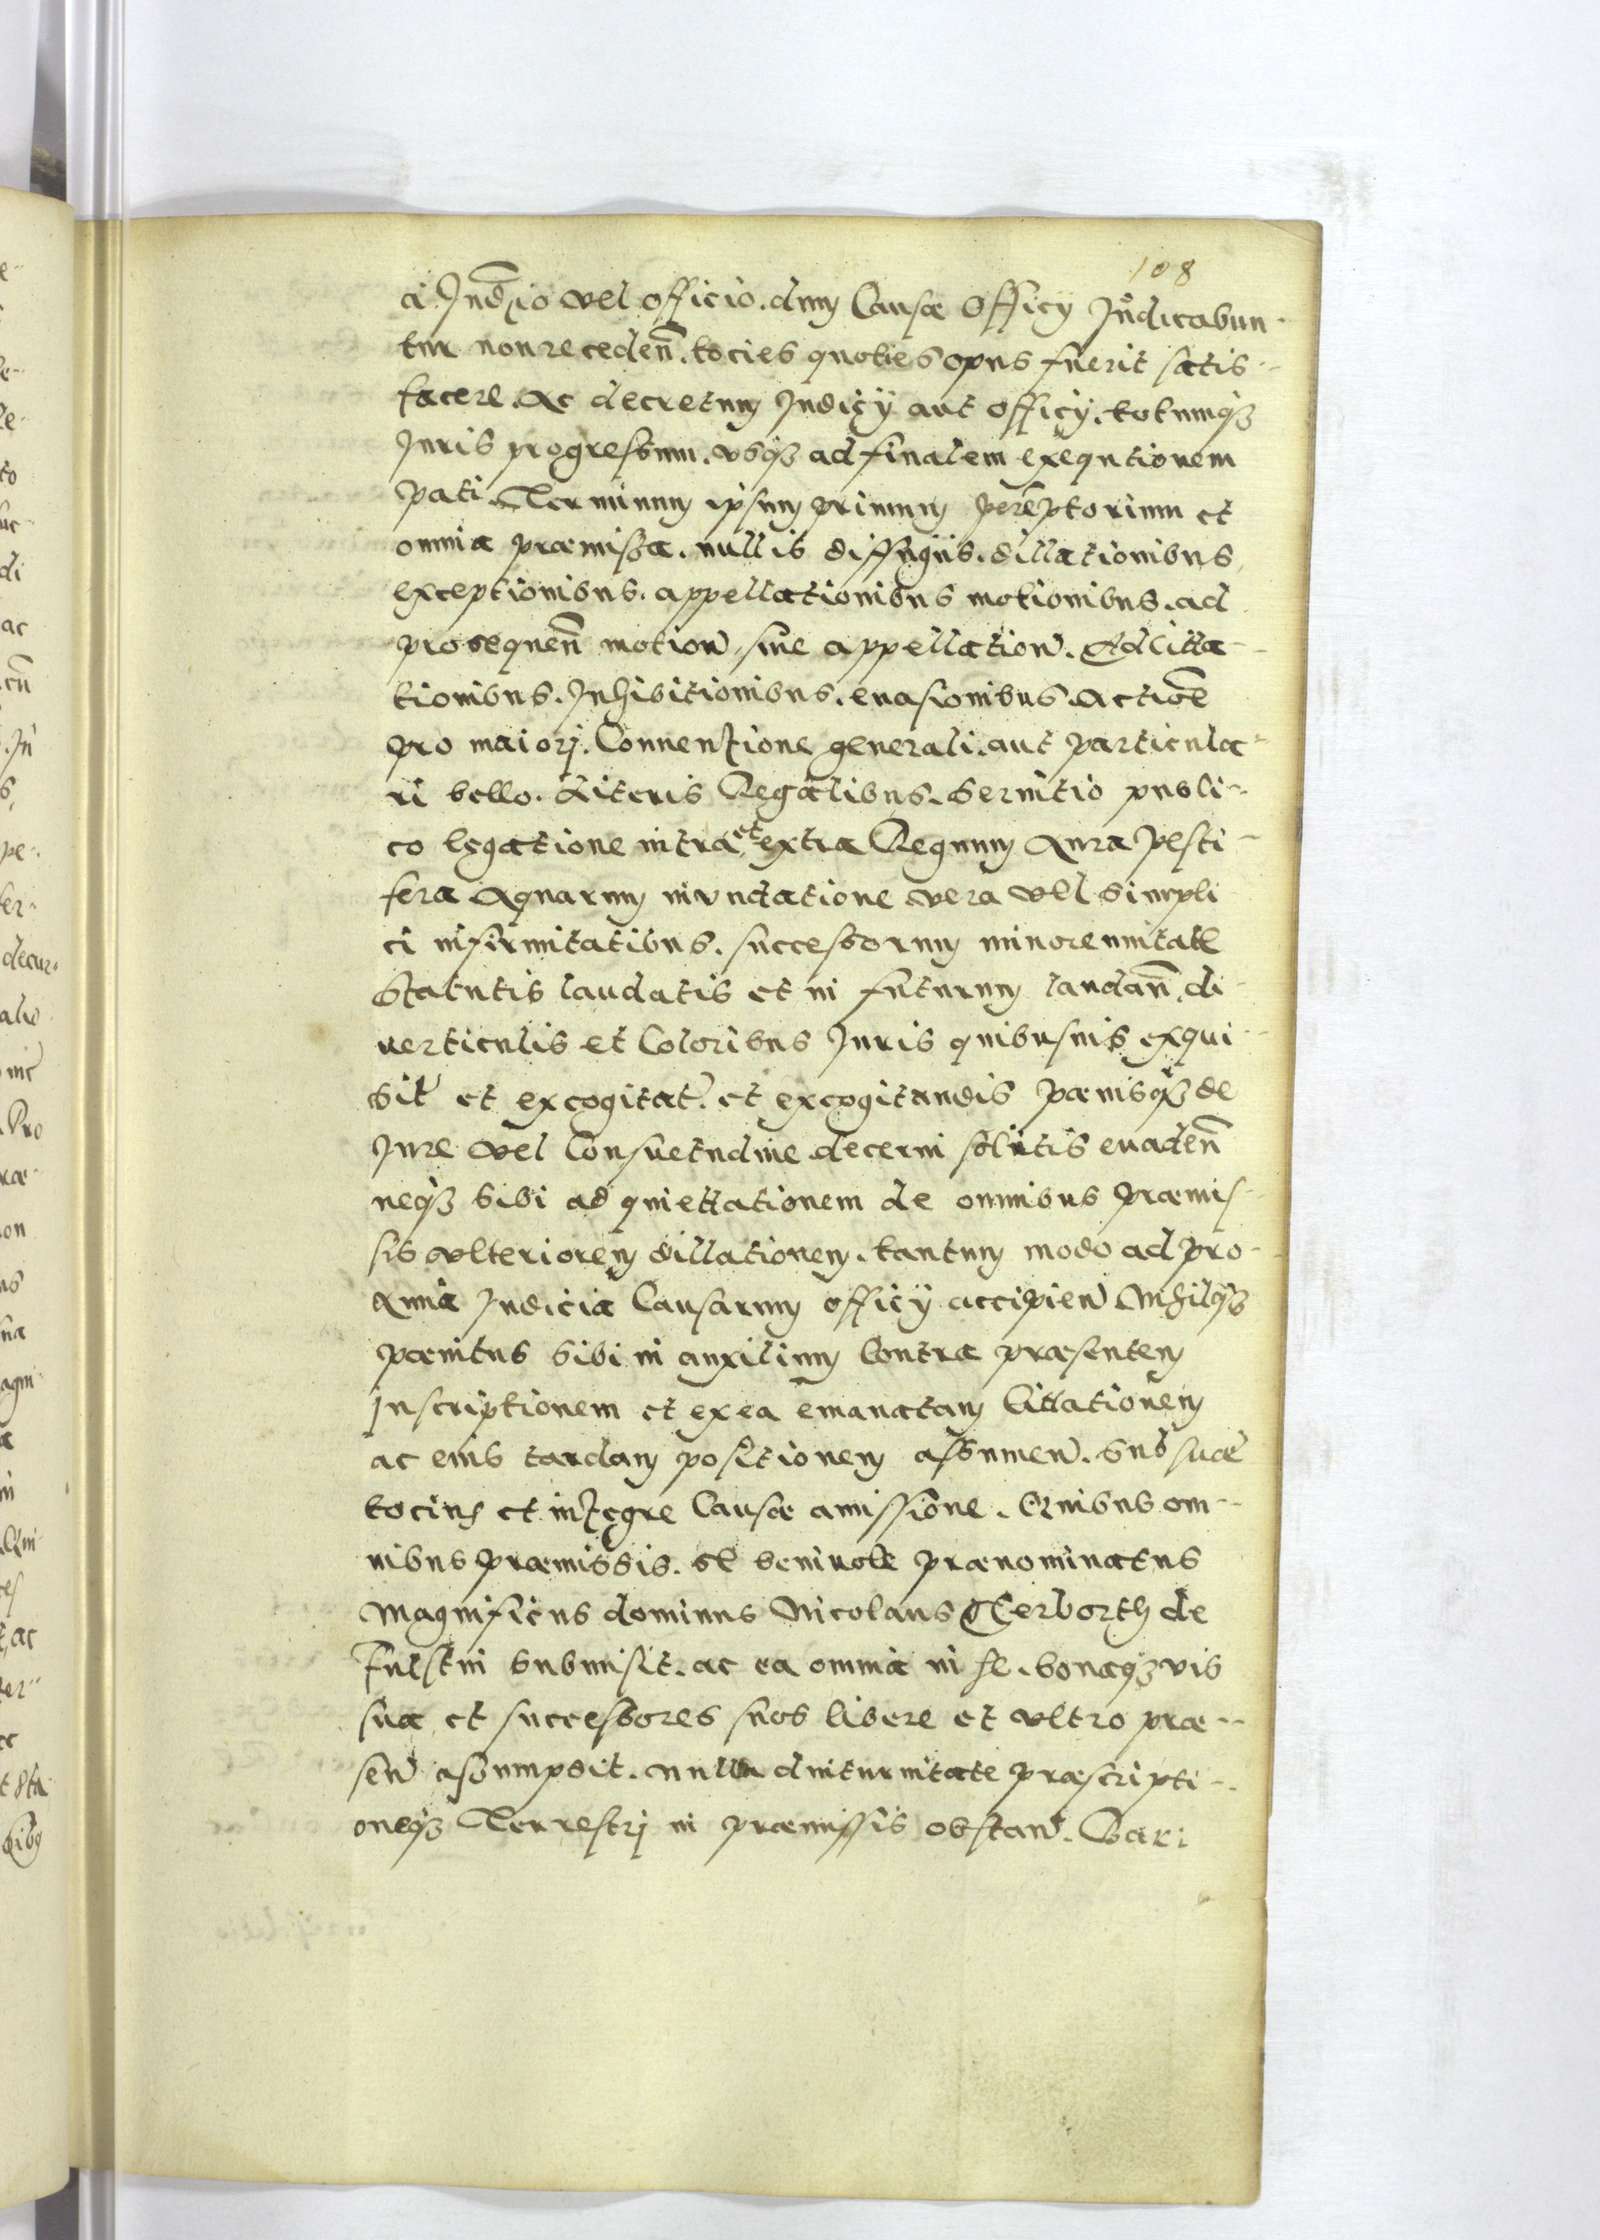 108
a Jud̃io vel officio. dum Causæ Officÿ Judicabun-
tur non recedeñ. tocies quoties opus fuerit satis-
facere ac decretum Judicÿ aut officÿ. totumq3
Juris progressum. vsq3 ad finalem exequtionem
pati. Terminum ipsum primum perẽptorium et
omnia præmissa. nullis diffugiis. dillationibus
exceptionibus. appellationibus motionibus. ad
prosequeñ motion̄. siue appellation̄. Ad citta-
tionibus. Inhibitionibus. euasionibus. actiõe
pro maiorj. Conuentione generali. aut particula-
ri bello. Literis Regalibus. Seruitio publi-
co legatione intra et extra Regnum Aura pesti-
fera Aquarum invndatione vera vel simpli
ci infirmitatibus. successorum minorennitate
Statutis laudatis et in futurum laudañ. di-
uerticulis et Coloribus Juris quibusuis exqui-
sit̄ et excogitat̄. et excogitandis pænisq3 de
Jure vel Consuetudine decerni solitis euadeñ
neq3 sibi ad quiettationem de omnibus præmis-
sis vlteriorem dillationem. tantum modo ad pro-
xima Judicia Causarum officÿ accipien̄ Nihilq3
pænitus sibi in auxilium Contra præsentem
Inscriptionem et ex ea emanatam Cittationem
ac eius tardam positionem assumen̄. Sub suæ
tocius et integre Causæ amissione. Quibus om-
nibus præmissis. se beniuole prænominatus
Magnificus dominus Nicolaus Herborth de
Fulstin submisit. ac ea omnia in se. bonaq3 vis
sua et successores suos libere et vltro præ-
sen̄ assumpsit. nulla diuturnitate præscripti-
oneq3 Terrestrj in præmissis obstan̄.